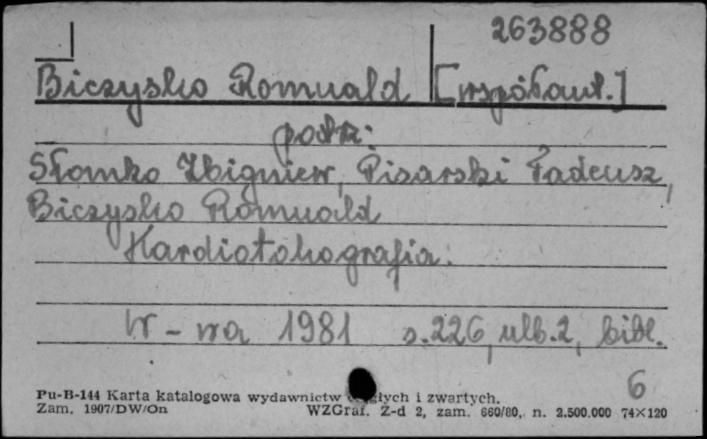 263888
Biczysko Romuald [współaut.]
patrz:
Słomko Zbigniew, Pisarski Tadeusz,
Biczysko Romuald
Kardiotokografia.
W-wa 1981 s. 226, nlb. 2, bibl.
6
Pu-B-144 Karta katalogowa wydawnictw ciągłych i zwartych.
Zam. 1907/DW/On WZGraf. Z-d 2, zam. 660/80, n. 2.500.000 74×120